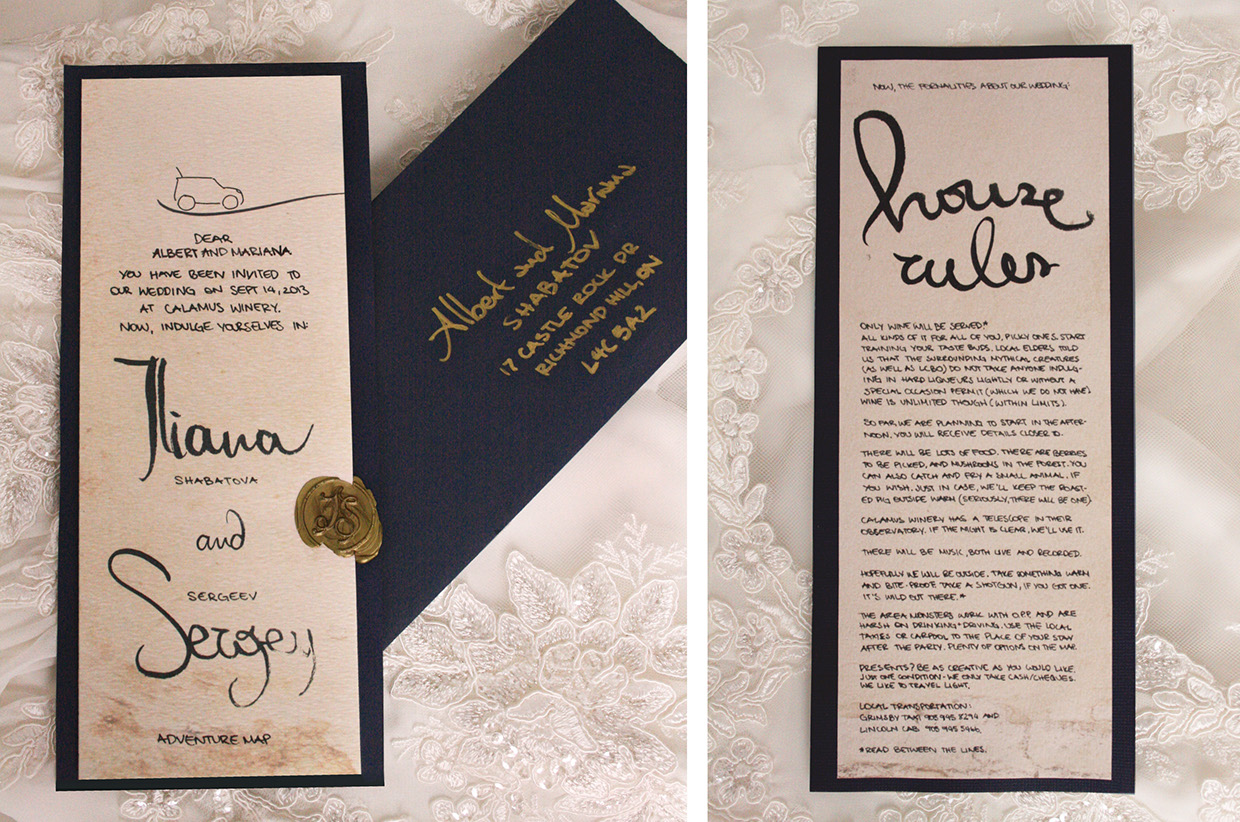 DEAR
ALBERT AND MARIANA
YOU HAVE BEEN INVITED TO
OUR WEDDING ON SEPT 14, 2013
AT CALAMUS WINERY.
NOW, INDULGE YOURSELVES IN:
Iliana
SHABATOVA
and
SERGEEV
Sergey
ADVENTURE MAP
IS
Albert and Mariana
SHABATOV
17 CASTLE ROCK DR
RICHMOND HILL, ON
L4C 5A2
NOW, THE FORMALITIES ABOUT OUR WEDDING:
house
rules
ONLY WINE WILL BE SERVED*
ALL KINDS OF IT FOR ALL OF YOU, PICKY ONES. START
TRAINING YOUR TASTE BUDS. LOCAL ELDERS TOLD
US THAT THE SURROUNDING MYTHICAL CREATURES
(AS WELL AS LCBO) DO NOT TAKE ANYONE INDULG-
ING IN HARD LIQUEURS LIGHTLY OR WITHOUT A
SPECIAL OCCASION PERMIT (WHICH WE DO NOT HAVE)
WINE IS UNLIMITED THOUGH (WITHIN LIMITS).
SO FAR, WE ARE PLANNING TO START IN THE AFTER-
NOON. YOU WILL RECEIVE DETAILS CLOSER TO.
THERE WILL BE LOTS OF FOOD. THERE ARE BERRIES
TO BE PICKED, AND MUSHROOMS IN THE FOREST. YOU
CAN ALSO CATCH AND FRY A SMALL ANIMAL, IF
YOU WISH. JUST IN CASE, WE'LL KEEP THE ROAST-
ED PIG OUTSIDE WARM (SERIOUSLY, THERE WILL BE ONE)
CALAMUS WINERY HAS A TELESCOPE IN THEIR
OBSERVATORY. IF THE NIGHT IS CLEAR, WE'LL USE IT.
THERE WILL BE MUSIC, BOTH LIVE AND RECORDED.
HOPEFULLY WE WILL BE OUTSIDE. TAKE SOMETHING WARM
AND BITE-PROOF. TAKE A SHOTGUN, IF YOU GOT ONE.
IT'S WILD OUT THERE.*
THE AREA MONSTERS WORK WITH O.P.P. AND ARE
HARSH ON DRINKING+DRIVING. USE THE LOCAL
TAXIES OR CARPOOL TO THE PLACE OF YOUR STAY
AFTER THE PARTY. PLENTY OF OPTIONS ON THE MAP.
PRESENTS? BE AS CREATIVE AS YOU WOULD LIKE.
JUST ONE CONDITION - WE ONLY TAKE CASH/CHEQUES.
WE LIKE TO TRAVEL LIGHT.
LOCAL TRANSPORTATION:
GRIMSBY TAXI 905 945 8294 AND
LINCOLN CAB 905 945 5466.
*READ BETWEEN THE LINES.